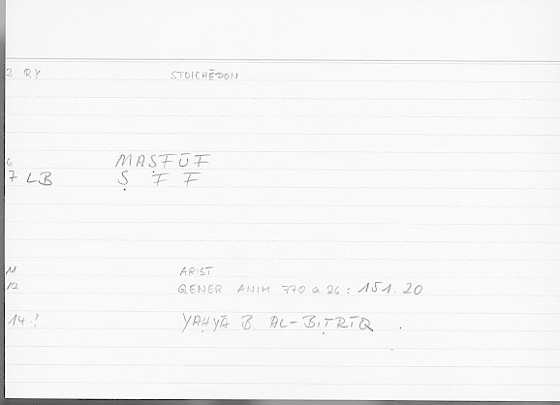 2 RY STOICHĒDON
6 MAṢFŪF
7 LB Ṣ F F
11 ARIST
12 GENER ANIM 770 a 26 : 151. 20
14 ? YAḤYĀ B. AL-BIṬRĪQ .